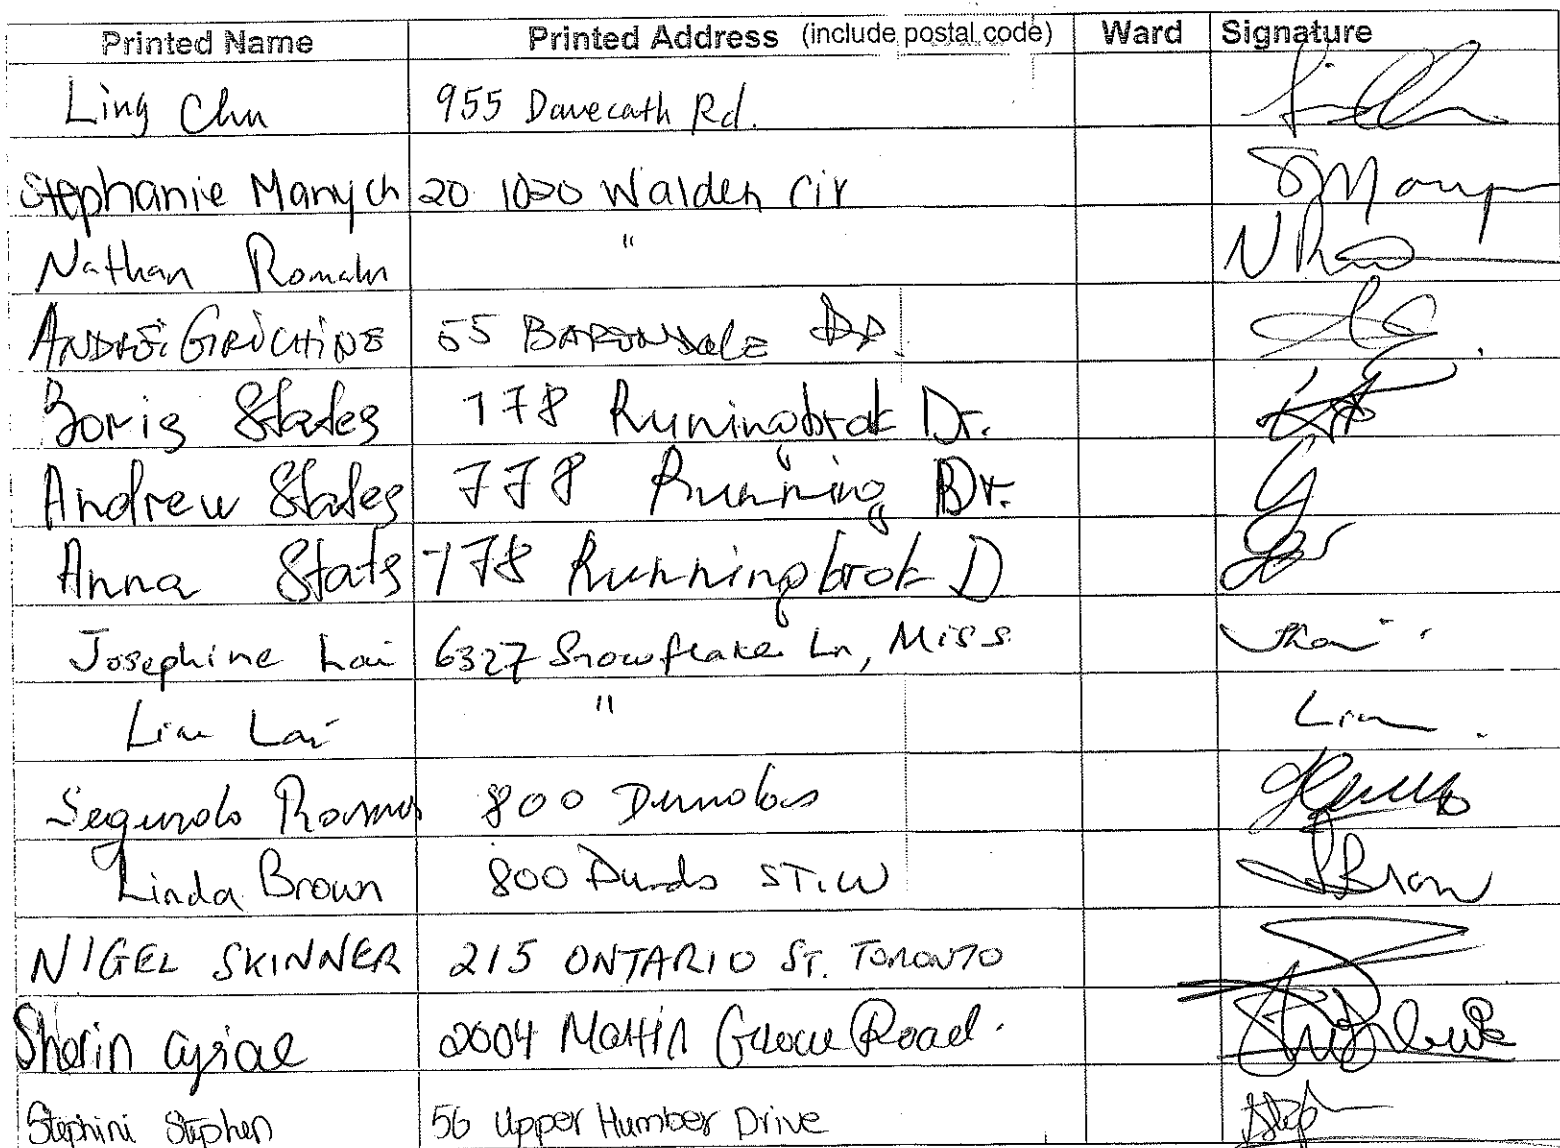 Printed Name Printed Address (include postal code) Ward Signature
Ling Chu 955 Davecath Rd.
Stephanie Manych 20 1020 Walden Cir
Nathan Romahn "
ANDREI GRICHINE 55 BARONDALE DR.
Boris States 778 Runingbrok Dr.
Andrew States 778 Running Dr.
Anna Stats 778 Runningbrok D
Josephine Lai 6327 Snowflake Ln, Miss
Lim Lai " Lim
Segundo Ramos 800 Dundas
Linda Brown 800 Dundas ST.W LBrown
NIGEL SKINNER 215 ONTARIO ST. TORONTO
Sherin Cyriac 2004 Martin Grove Road.
Stephini Stephen 56 Upper Humber Drive